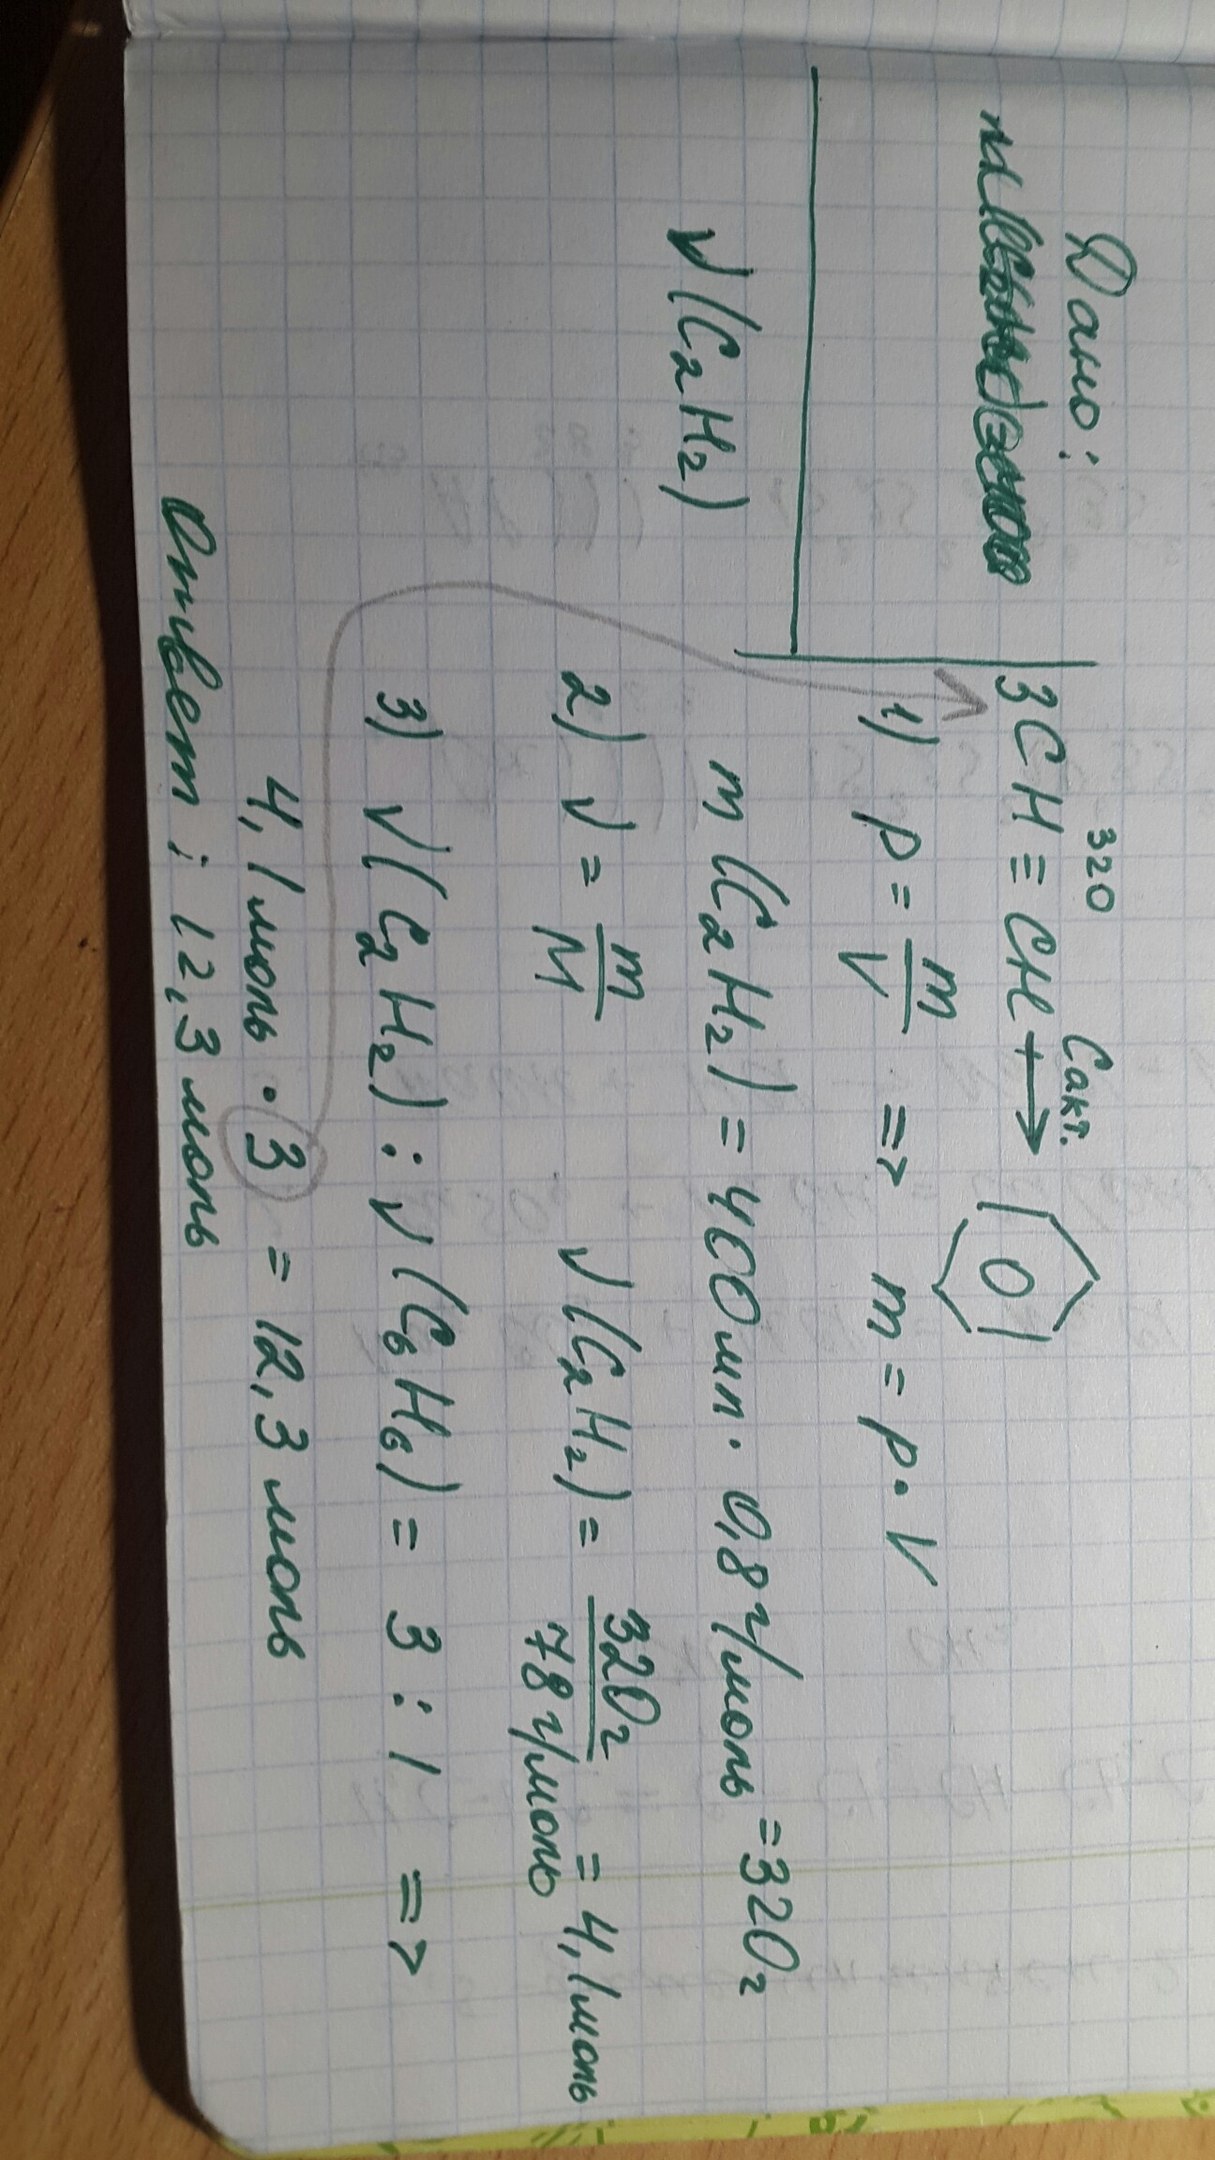 Дано:
320 Cакт.
3CH≡CH ⟶
1) ρ = m/V => m = ρ·V
m(C₂H₂) = 400мл·0,8г/моль = 320г
ν(C₂H₂)
2) ν = m/M ν(C₂H₂) = 320г/78г/моль = 4,1моль
3) ν(C₂H₂) : ν(C₆H₆) = 3 : 1 =>
4,1моль · 3 = 12,3 моль
Ответ: 12,3 моль